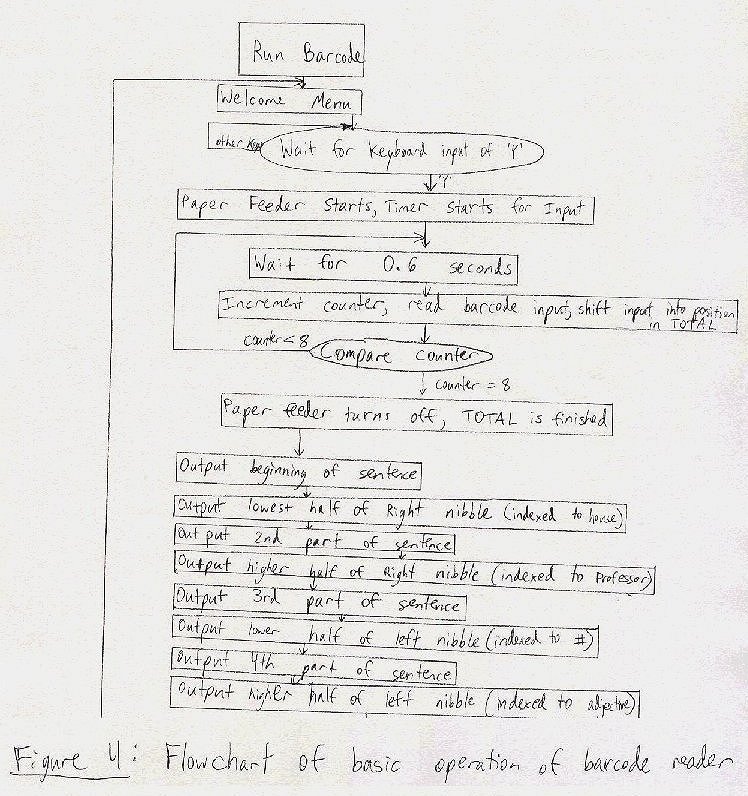 Run Barcode
Welcome Menu
other key
Wait for Keyboard input of 'Y'
'Y'
Paper Feeder Starts, Timer Starts for Input
Wait for 0.6 seconds
Increment counter, read barcode input, shift input into position
in TOTAL
counter < 8
Compare counter
counter = 8
Paper feeder turns off, TOTAL is finished
Output beginning of sentence
Output lowest half of Right nibble (indexed to house)
Output 2nd part of sentence
Output higher half of Right nibble (indexed to Professor)
Output 3rd part of sentence
Output lower half of left nibble (indexed to #)
Output 4th part of sentence
Output higher half of left nibble (indexed to adjective)
Figure 4: Flowchart of basic operation of barcode reader